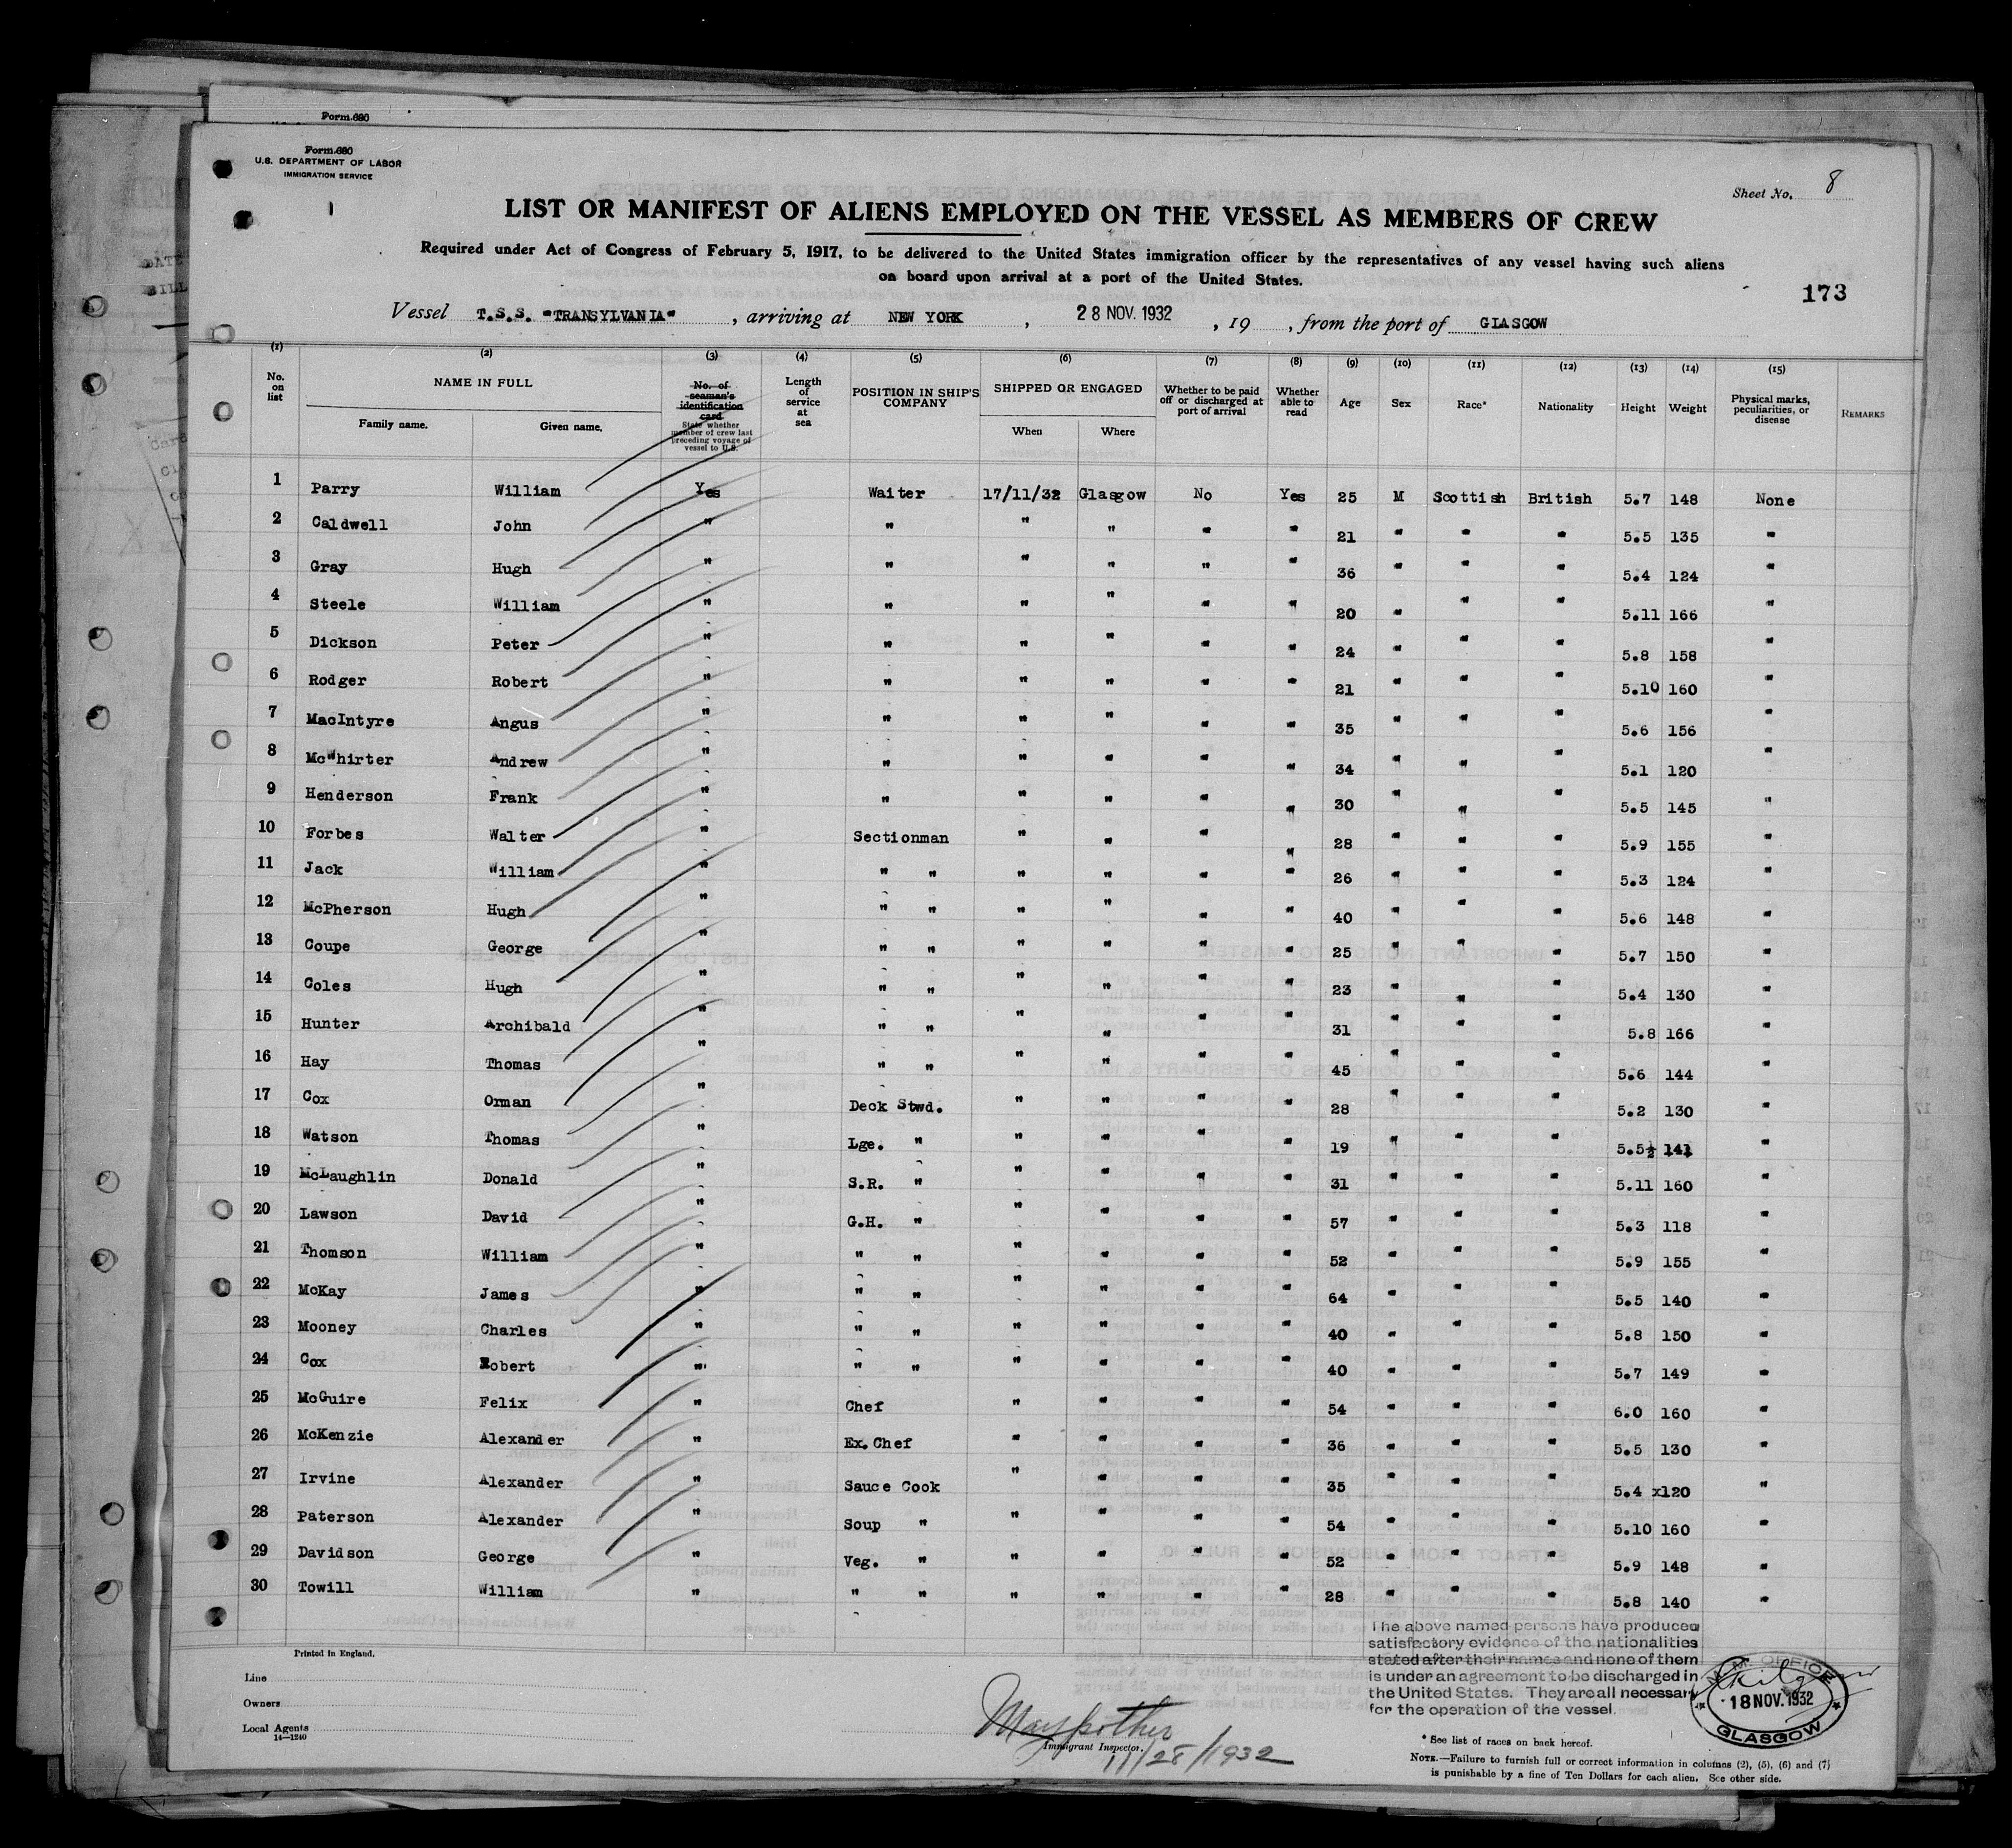 Form 680
Form 680
U.S. DEPARTMENT OF LABOR
IMMIGRATION SERVICE
Sheet No. 8
LIST OR MANIFEST OF ALIENS EMPLOYED ON THE VESSEL AS MEMBERS OF CREW
Required under Act of Congress of February 5, 1917, to be delivered to the United States immigration officer by the representatives of any vessel having such aliens
on board upon arrival at a port of the United States.
173
Vessel T.S.S. "TRANSYLVANIA" , arriving at NEW YORK , 28 NOV. 1932 , 19 , from the port of GLASGOW
(1) (2) (3) (4) (5) (6) (7) (8) (9) (10) (11) (12) (13) (14) (15)
No. on list NAME IN FULL Family name. Given name. No. of seaman's identification card State whether member of crew last preceding voyage of vessel to U.S. Length of service at sea POSITION IN SHIP'S COMPANY SHIPPED OR ENGAGED When Where Whether to be paid off or discharged at port of arrival Whether able to read Age Sex Race* Nationality Height Weight Physical marks, peculiarities, or disease REMARKS
1 Parry William Yes Waiter 17/11/32 Glasgow No Yes 25 M Scottish British 5.7 148 None
2 Caldwell John " " " " " " 21 " " " 5.5 135 "
3 Gray Hugh " " " " " " 36 " " " 5.4 124 "
4 Steele William " " " " " " 20 " " " 5.11 166 "
5 Dickson Peter " " " " " " 24 " " " 5.8 158 "
6 Rodger Robert " " " " " " 21 " " " 5.10 160 "
7 MacIntyre Angus " " " " " " 35 " " " 5.6 156 "
8 McWhirter Andrew " " " " " " 34 " " " 5.1 120 "
9 Henderson Frank " " " " " " 30 " " " 5.5 145 "
10 Forbes Walter " Sectionman " " " " 28 " " " 5.9 155 "
11 Jack William " " " " " " " 26 " " " 5.3 124 "
12 McPherson Hugh " " " " " " " 40 " " " 5.6 148 "
13 Coupe George " " " " " " " 25 " " " 5.7 150 "
14 Coles Hugh " " " " " " " 23 " " " 5.4 130 "
15 Hunter Archibald " " " " " " " 31 " " " 5.8 166 "
16 Hay Thomas " " " " " " " 45 " " " 5.6 144 "
17 Cox Orman " Deck Stwd. " " " " 28 " " " 5.2 130 "
18 Watson Thomas " Lge. " " " " " 19 " " " 5.5½ 141 "
19 McLaughlin Donald " S.R. " " " " " 31 " " " 5.11 160 "
20 Lawson David " G.H. " " " " " 57 " " " 5.3 118 "
21 Thomson William " " " " " " " 52 " " " 5.9 155 "
22 McKay James " " " " " " " 64 " " " 5.5 140 "
23 Mooney Charles " " " " " " " 40 " " " 5.8 150 "
24 Cox Robert " " " " " " " 40 " " " 5.7 149 "
25 McGuire Felix " Chef " " " " 54 " " " 6.0 160 "
26 McKenzie Alexander " Ex. Chef " " " " 36 " " " 5.5 130 "
27 Irvine Alexander " Sauce Cook " " " " 35 " " " 5.4 x120 "
28 Paterson Alexander " Soup " " " " " 54 " " " 5.10 160 "
29 Davidson George " Veg. " " " " " 52 " " " 5.9 148 "
30 Towill William " " " " " " " 28 " " " 5.8 140 "
The above named persons have produced
satisfactory evidence of the nationalities
stated after their names and none of them
is under an agreement to be discharged in
the United States. They are all necessary
for the operation of the vessel.
M.M. OFFICE
18 NOV. 1932
GLASGOW
Printed in England.
Line
Owners
Local Agents
14—1240
Immigrant Inspector.
11/28/1932
* See list of races on back hereof.
NOTE.—Failure to furnish full or correct information in columns (2), (5), (6) and (7)
is punishable by a fine of Ten Dollars for each alien. See other side.